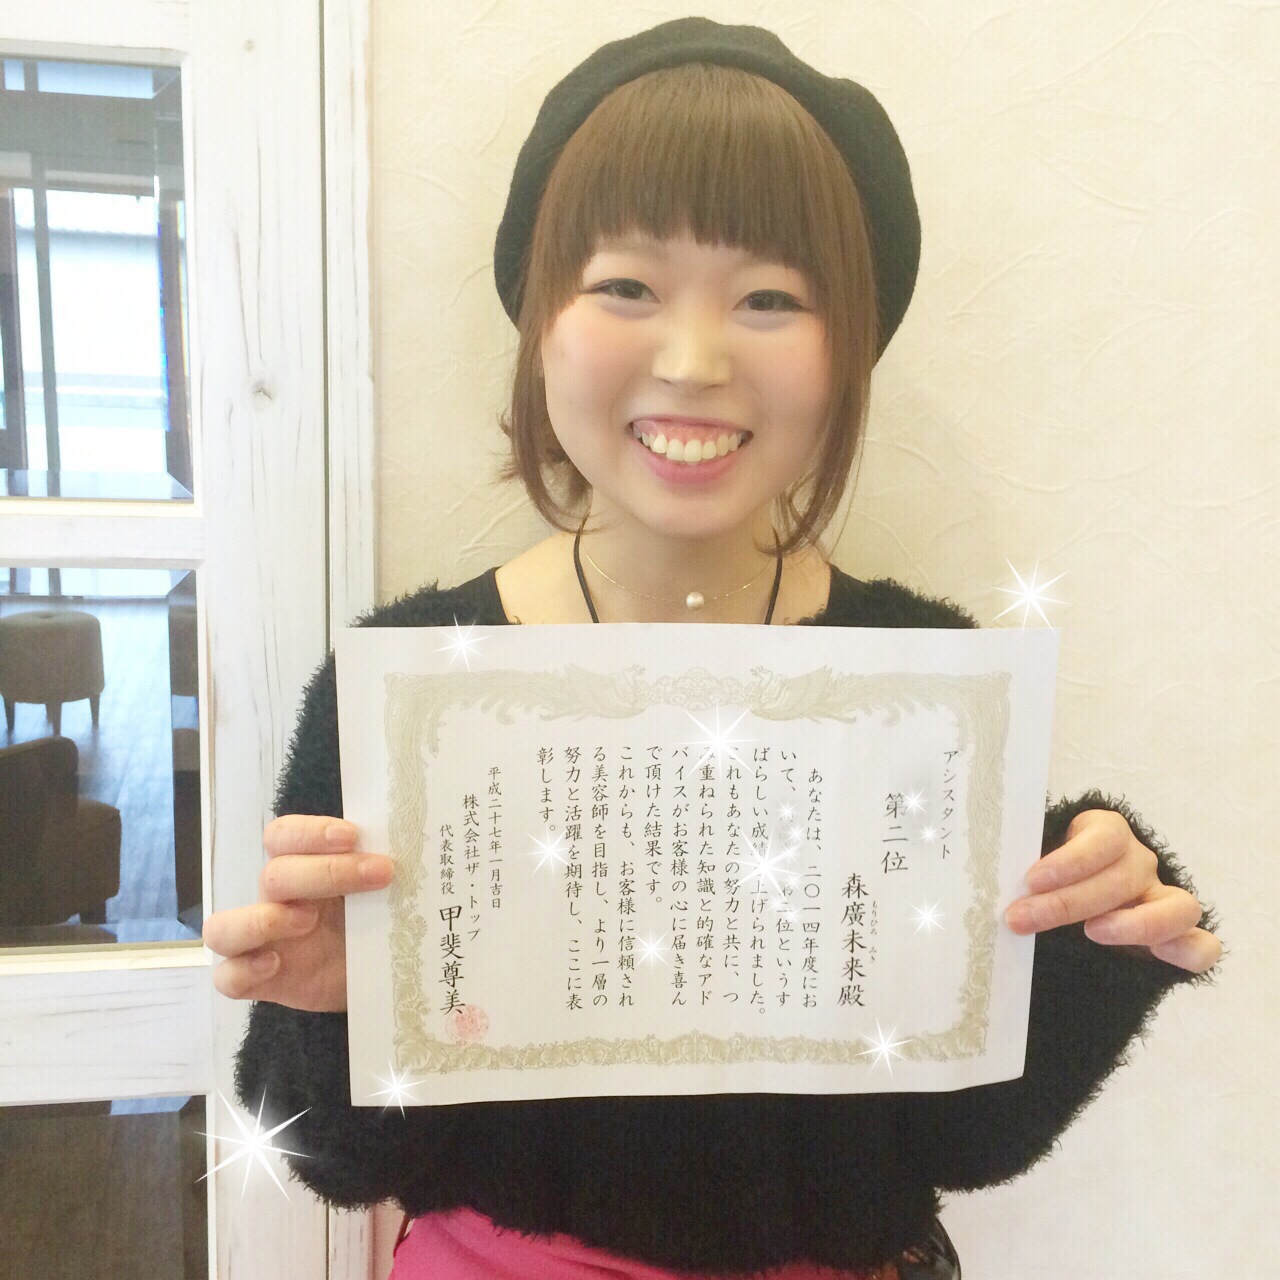 アシスタント
第二位
森廣未来殿
もりひろ みき
あなたは、二〇一四年度にお
いて、 第二位というす
ばらしい成績 上げられました。
これもあなたの努力と共に、つ
み重ねられた知識と的確なアド
バイスがお客様の心に届き喜ん
で頂けた結果です。
これからも、お客様に信頼され
る美容師を目指し、より一層の
努力と活躍を期待し、ここに表
彰します。
平成二十七年一月吉日
株式会社ザ・トップ
代表取締役 甲斐尊美